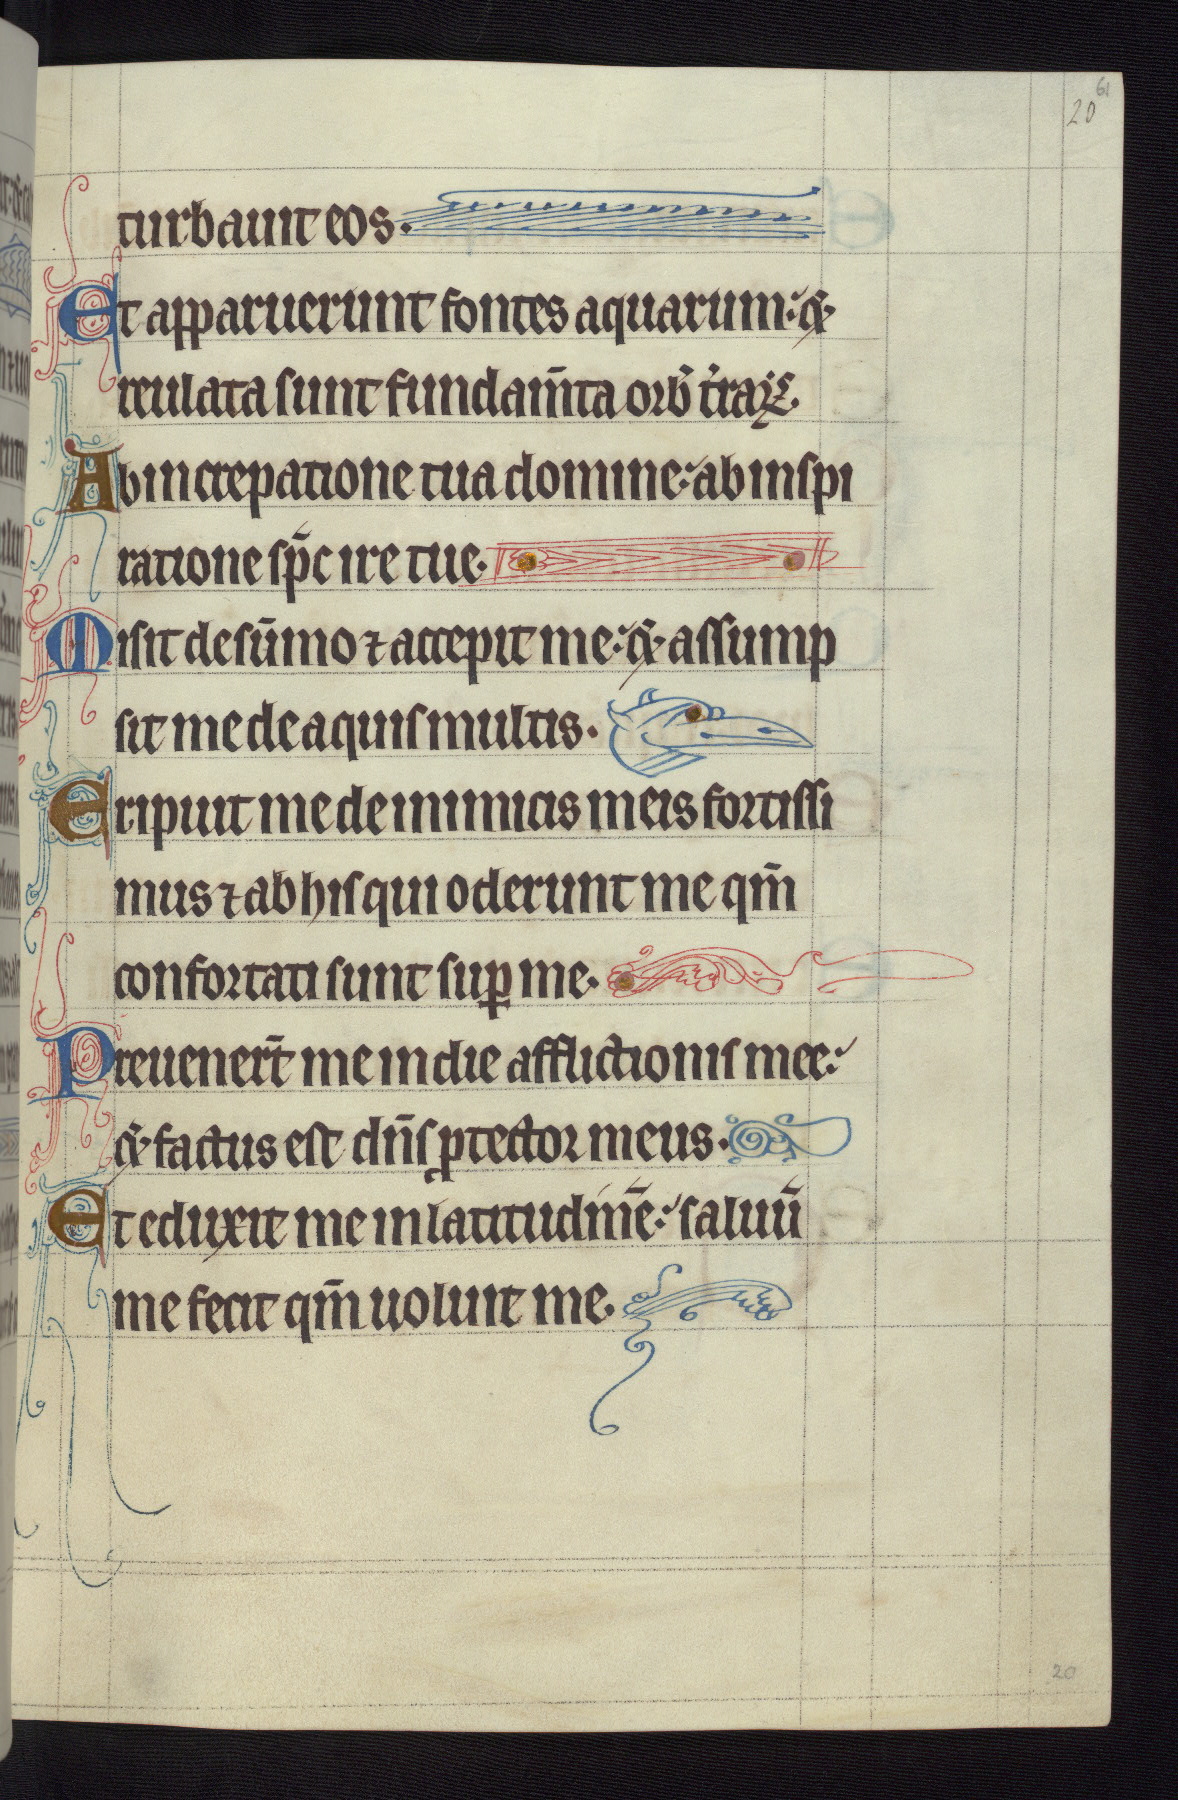 61
20
turbauit eos.
Et apparuerunt fontes aquarum: &
reuelata sunt fundam̄ta orb̄ t̄raꝝ.
Ab increpatione tua domine: ab inspi
ratione sp̄c ire tue.
Misit de sūmo ⁊ accepit me: & assump
sit me de aquis multis.
Eripuit me de inimicis meis fortissi
mus ⁊ ab his qui oderunt me qm̄
confortati sunt sup̲ me.
Preuener̄t me in die afflictionis mee:
& factus est dn̄s ꝓtector meus.
Et eduxit me in latitudinē: saluū
me fecit qm̄ uoluit me.
20